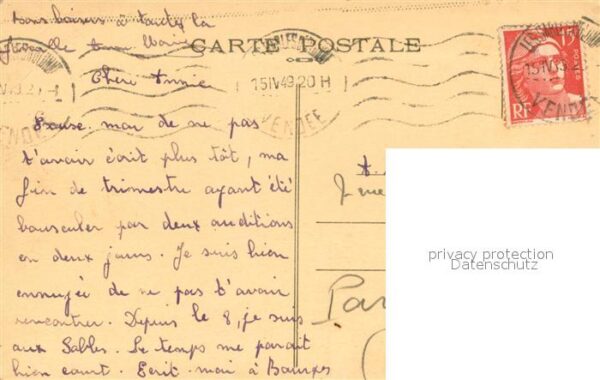 bons baisers à toute la
famille
CARTE POSTALE
Chère Annie
15 IV 49 20 H
VENDEE
15 F
POSTES
RF
15 IV 49
VENDEE
Excuse moi de ne pas
t'avoir écrit plus tôt, ma
fin de trimestre ayant été
bousculer par deux auditions
en deux jours. Je suis bien
ennuyée de ne pas t'avoir
rencontrer. Depuis le 8, je suis
aux Sables. Le temps me paraît
bien court. Ecrit moi à
rue
privacy protection
Datenschutz